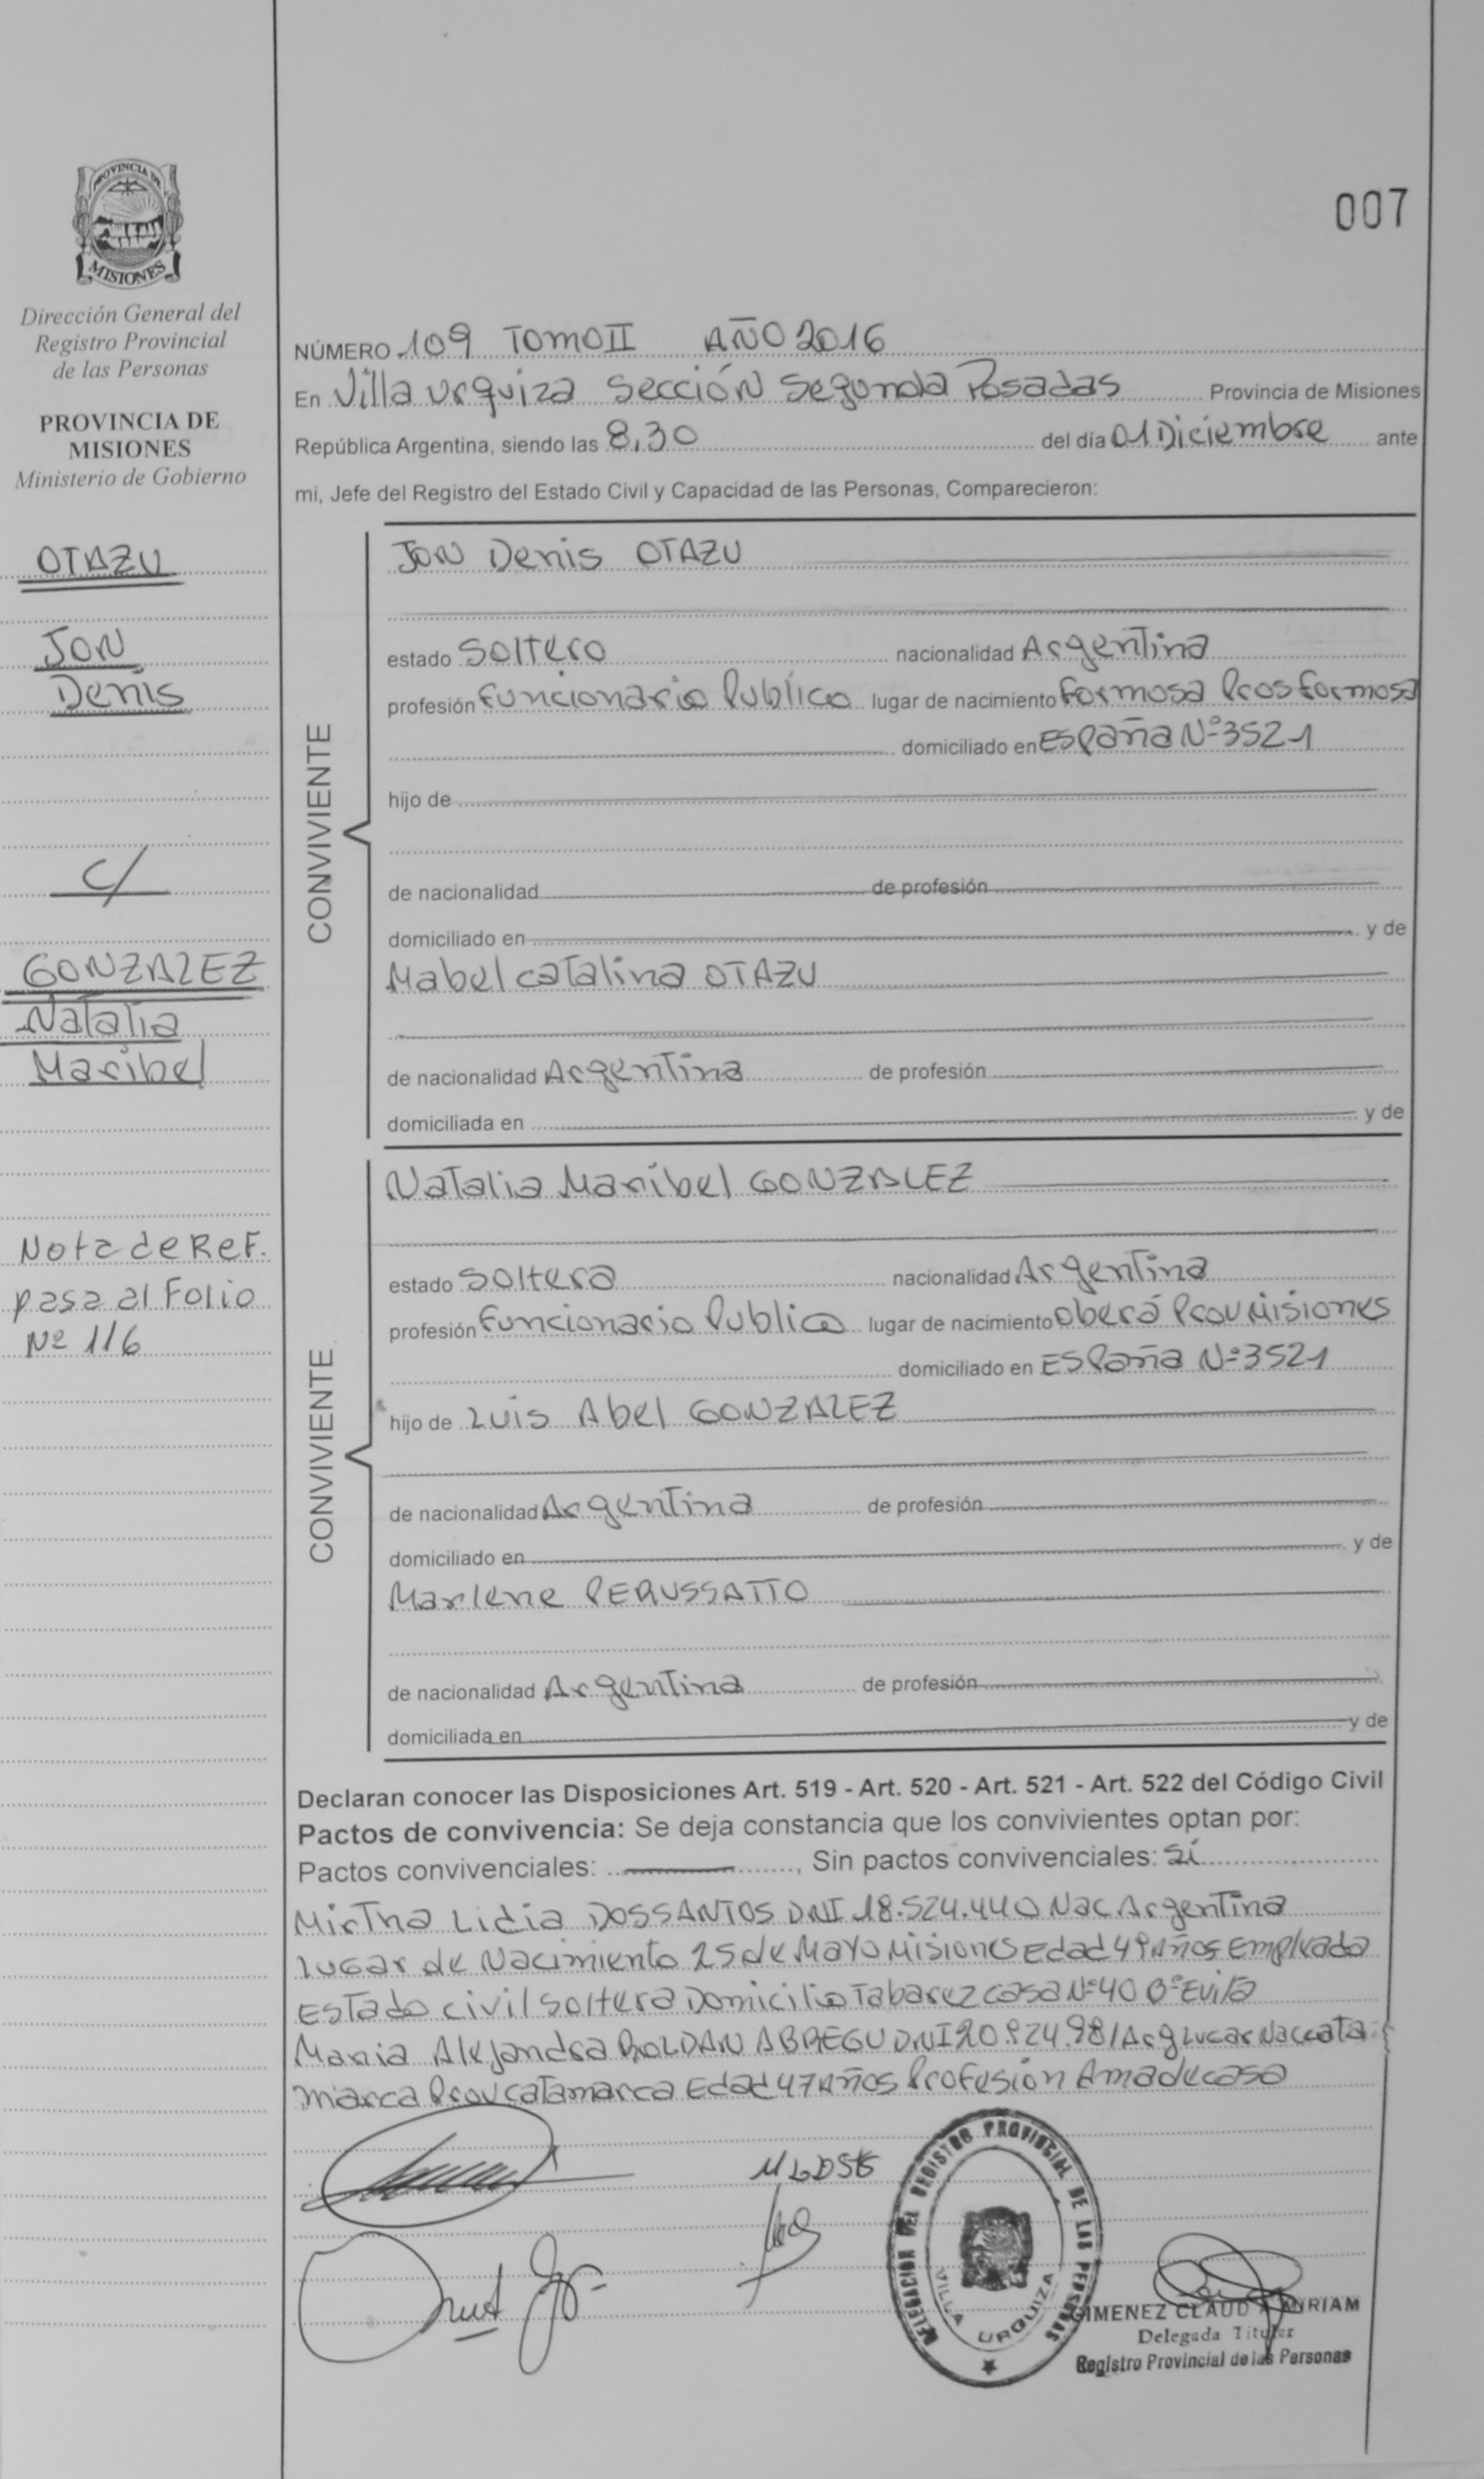 PROVINCIA DE
MISIONES
Dirección General del
Registro Provincial
de las Personas
PROVINCIA DE
MISIONES
Ministerio de Gobierno
OTAZU
JON
Denis
c/
GONZALEZ
Natalia
Maribel
Nota de Ref.
pasa al Folio
Nº 116
007
NÚMERO 109 TOMO II AÑO 2016
En Villa Urquiza Sección Segunda Posadas Provincia de Misiones
República Argentina, siendo las 8,30 del día 01 Diciembre ante
mi, Jefe del Registro del Estado Civil y Capacidad de las Personas, Comparecieron:
CONVIVIENTE
JON Denis OTAZU
estado Soltero nacionalidad Argentina
profesión Funcionario Publico lugar de nacimiento Formosa Formosa
domiciliado en España Nº 3521
hijo de
de nacionalidad de profesión
domiciliado en y de
Mabel catalina OTAZU
de nacionalidad Argentina de profesión
domiciliada en y de
CONVIVIENTE
Natalia Maribel GONZALEZ
estado Soltera nacionalidad Argentina
profesión Funcionario Publico lugar de nacimiento Oberá Prov Misiones
domiciliado en España Nº 3521
hijo de Luis Abel GONZALEZ
de nacionalidad Argentina de profesión
domiciliado en y de
Marlene PERUSSATTO
de nacionalidad Argentina de profesión
domiciliada en y de
Declaran conocer las Disposiciones Art. 519 - Art. 520 - Art. 521 - Art. 522 del Código Civil
Pactos de convivencia: Se deja constancia que los convivientes optan por:
Pactos convivenciales: , Sin pactos convivenciales: Sí
Mirtha Lidia DOSSANTOS DNI 18.524.440 Nac Argentina
Lugar de Nacimiento 25 de Mayo Misiones Edad 49 Años Empleada
Estado civil Soltera Domicilio Tabarez casa Nº 40 Bº Evita
Maria Alejandra ROLDAN ABREGU DNI Arg Lugar Nac cata
marca Prov catamarca Edad 47 Años Profesión Ama de casa
DELEGACION DEL REGISTRO PROVINCIAL DE LAS PERSONAS
VILLA URQUIZA
GIMENEZ CLAUD MIRIAM
Delegada Titular
Registro Provincial de las Personas